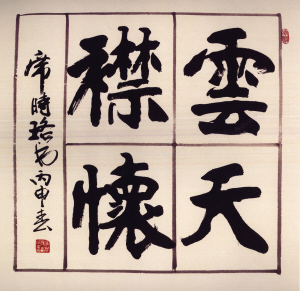 雲天
襟懷
席時珞書丙申春